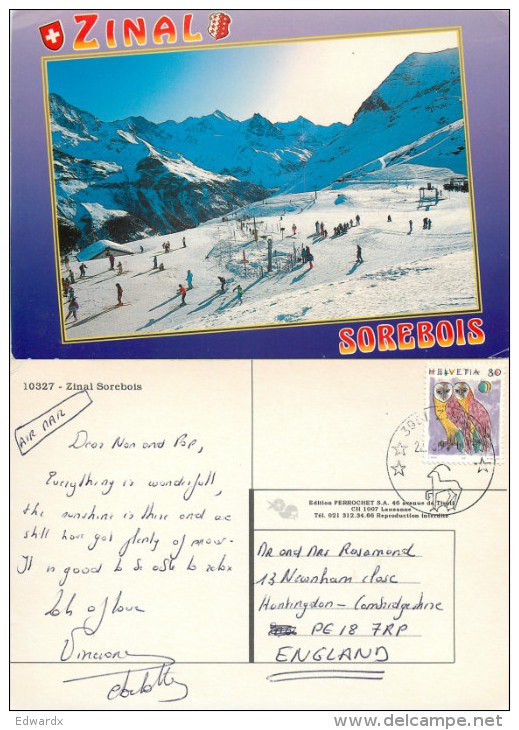 ZINAL
SOREBOIS
10327 - Zinal Sorebois
AIR MAIL
HELVETIA 80
Dear Nan and Pop,
Everything is wonderfull,
the sunshine is there and we
still have got plenty of snow.
It is good to be able to relax
Lots of love
Edition PERROCHET S.A. 46 avenue de Tivoli
CH 1007 Lausanne
Tél. 021 312.34.66 Reproduction interdite
MR and MRS Rosamond
13 Newnham close
Huntingdon - Cambridgeshire
PE18 7RP
ENGLAND
Edwardx
delcampe.net